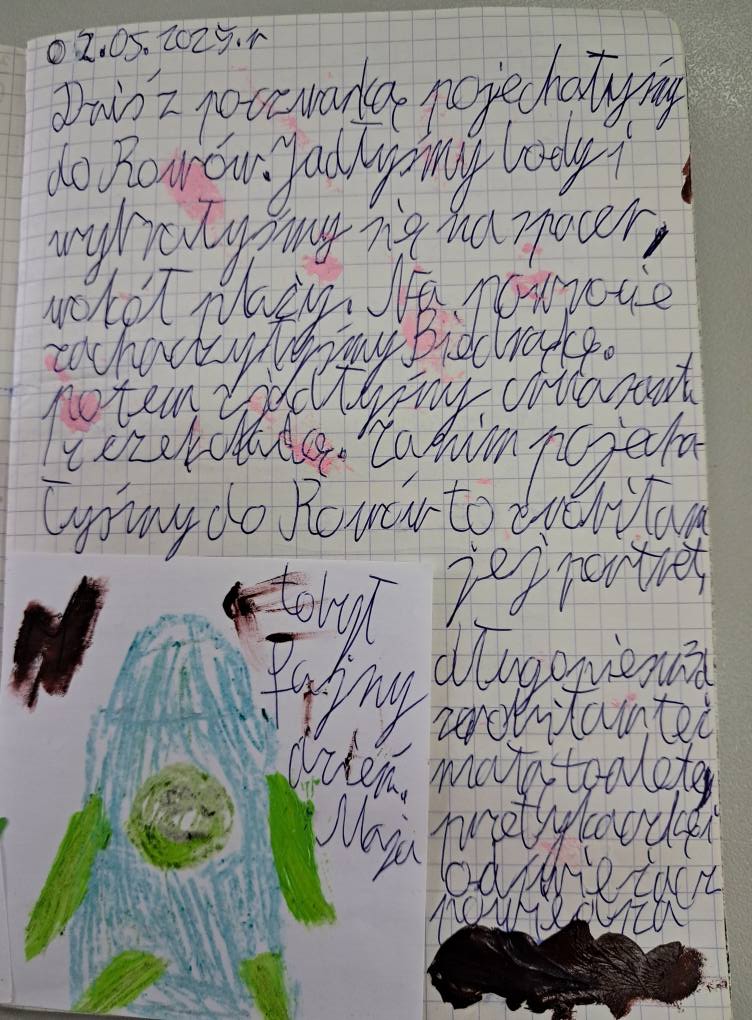 02.05.2025.r
Dziś z poczwarką pojechałyśmy
do Rowów. Jadłyśmy lody i
wybrałyśmy się na spacer,
wokół plaży. Na powrocie
zachaczyłyśmy Biedrakę.
potem zjadłyśmy
z czekoladą. Zanim pojecha-
łyśmy do Rowów to zrobiłam
jej portret,
zrobiłam też
małą toaletę,
odświeżacz
powietrza
to był
fajny
dzień.
Maja